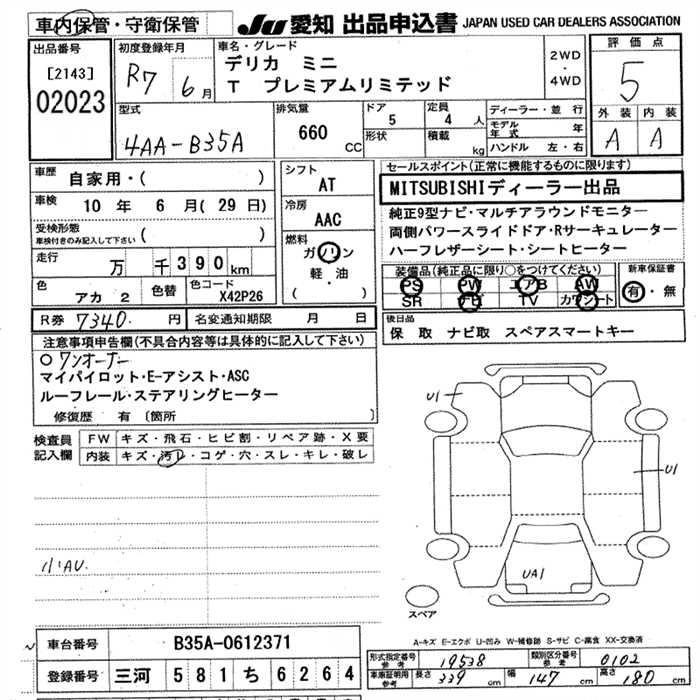 車内保管・守衛保管
JU 愛知 出品申込書 JAPAN USED CAR DEALERS ASSOCIATION
出品番号
[2143]
02023
初度登録年月
R7 6月
車名・グレード
デリカ ミニ
T プレミアムリミテッド
2WD
・
4WD
評価点
5
外装 内装
A A
型式
4AA-B35A
排気量
660 CC
ドア
5
形状
定員
4 人
積載
kg
ディーラー・並行
モデル年式 年
ハンドル 左・右
車歴 自家用・( )
車検 10年 6月(29日)
受検形態
車検付きのみ記入して下さい ( )
走行 万 千390km
色 アカ 2
色替
色コード
X42P26
シフト
AT
冷房
AAC
燃料
ガソリン
軽・油
( )
セールスポイント(正常に機能するものに限ります)
MITSUBISHIディーラー出品
純正9型ナビ・マルチアラウンドモニター
両側パワースライドドア・Rサーキュレーター
ハーフレザーシート・シートヒーター
装備品(純正品に限り○をつけてください)
PS PW エアB AW
SR ナビ TV カワシート
新車保証書
有・無
R券 7340. 円 名変通知期限 月 日
後日品
保 取 ナビ取 スペアスマートキー
注意事項申告欄(不具合内容等は具体的に記入して下さい)
○ワンオーナー
マイパイロット・E-アシスト・ASC
ルーフレール・ステアリングヒーター
修復歴 有 〔箇所
検査員記入欄
FW キズ・飛石・ヒビ割・リペア跡・X要
内装 キズ・汚レ・コゲ・穴・スレ・キレ・破レ
小キズU.
U1
U1
UA1
スペア
A-キズ E-エクボ U-凹み W-補修跡 S-サビ C-腐食 XX-交換済
車台番号 B35A-0612371
登録番号 三河 581 ち 6264
形式指定番号
参考 19538
類別区分番号
参考 0102
車庫証明用
参考 長さ 339 cm 幅 147 cm 高さ 180 cm